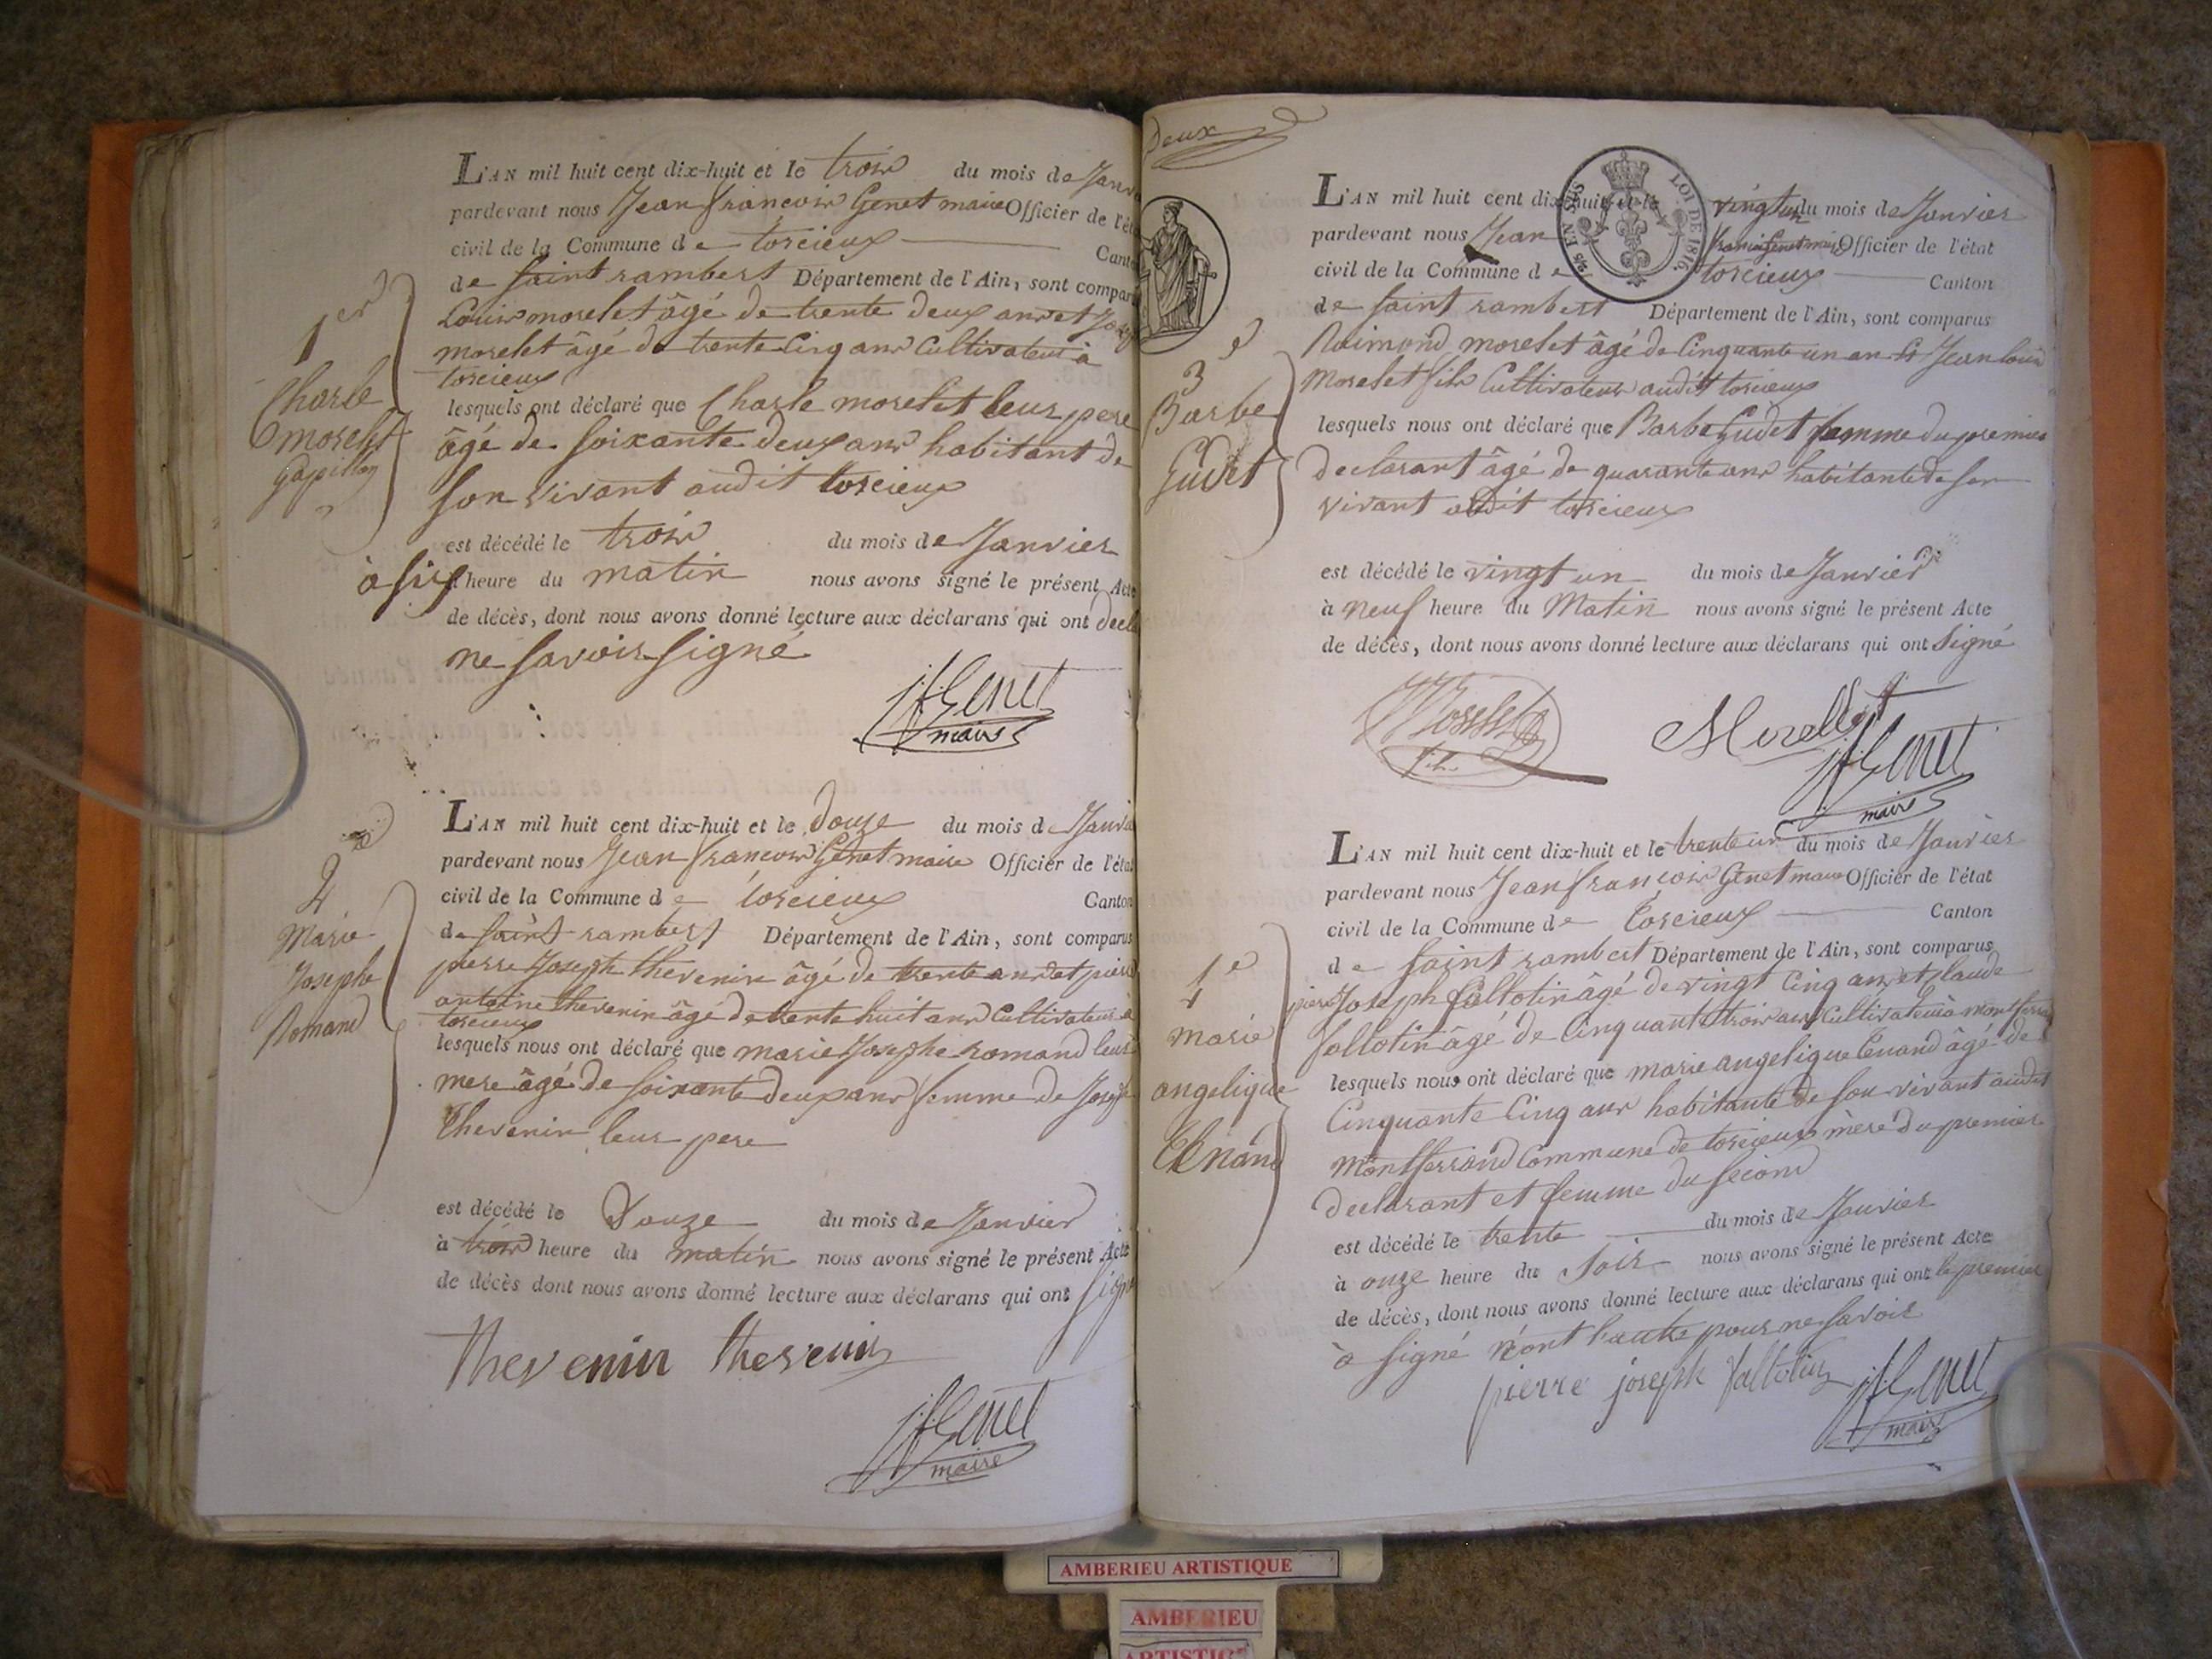 L'AN mil huit cent dix-huit et le trois du mois de Janvi
pardevant nous Jean françois Genet maire Officier de l'ét
civil de la Commune de torcieux Canto
de saint rambert Département de l'Ain, sont compar
Louis morelet âgé de trente deux ans et
morelet âgé de trente cinq ans Cultivateur à
torcieux
1er
Charle
morelet
lesquels ont déclaré que Charle morelet leur pere
âgé de soixante deux ans habitant de
son vivant audit torcieux
est décédé le trois du mois de Janvier
à six heure du matin nous avons signé le présent Acte
de décès, dont nous avons donné lecture aux déclarans qui ont decla
ne savoir signé
jfGenet
maire
L'AN mil huit cent dix-huit et le douze du mois de Janvie
pardevant nous Jean francois Genet maire Officier de l'état
civil de la Commune de torcieux Canton
de saint rambert Département de l'Ain, sont comparus
pierre Joseph thevenin âgé de trente ans et pierre
antoine thevenin âgé de trente huit ans Cultivateurs à
torcieux
2
Marie
Josephe
Romand
lesquels nous ont déclaré que marie Josephe romand leur
mere âgé de soixante deux ans femme de Joseph
thevenin leur pere
est décédé le Douze du mois de Janvier
à trois heure du matin nous avons signé le présent Acte
de décès dont nous avons donné lecture aux déclarans qui ont signé
thevenin thevenin
jfGenet
maire
Deux
1/25 EN SUS LOI DE 1816.
L'AN mil huit cent dix-huit et le vingt un du mois de Janvier
pardevant nous Jean francois Genet maire Officier de l'état
civil de la Commune de torcieux Canton
de saint rambert Département de l'Ain, sont comparus
Raimond morelet âgé de Cinquante un an et Jean louis
Morelet fils Cultivateur audit torcieux
3e
Barbe
Gudet
lesquels nous ont déclaré que Barbe Gudet femme du premier
declarant âgé de quarante ans habitante de son
vivant audit torcieux
est décédé le vingt un du mois de Janvier
à neuf heure du Matin nous avons signé le présent Acte
de décès, dont nous avons donné lecture aux déclarans qui ont signé
Morelet
fils
Morellet
jfGenet
maire
L'AN mil huit cent dix-huit et le trente un du mois de Janvier
pardevant nous Jean françois Genet maire Officier de l'état
civil de la Commune de torcieux Canton
de saint rambert Département de l'Ain, sont comparus
pierre Joseph fallotin âgé de vingt Cinq ans et Claude
fallotin âgé de Cinquante trois ans Cultivateur à montferrand
4e
marie
angelique
tenand
lesquels nous ont déclaré que marie angelique tenand âgé de
Cinquante Cinq ans habitante de son vivant audit
Montferrand Commune de torcieux mère du premier
declarant et femme du second
est décédé le trente du mois de Janvier
à onze heure du soir nous avons signé le présent Acte
de décès, dont nous avons donné lecture aux déclarans qui ont le premier
à signé n'ont l'autre pour ne savoir
pierre joseph fallotin
jfGenet
maire
AMBERIEU ARTISTIQUE
AMBERIEU
ARTISTIQ